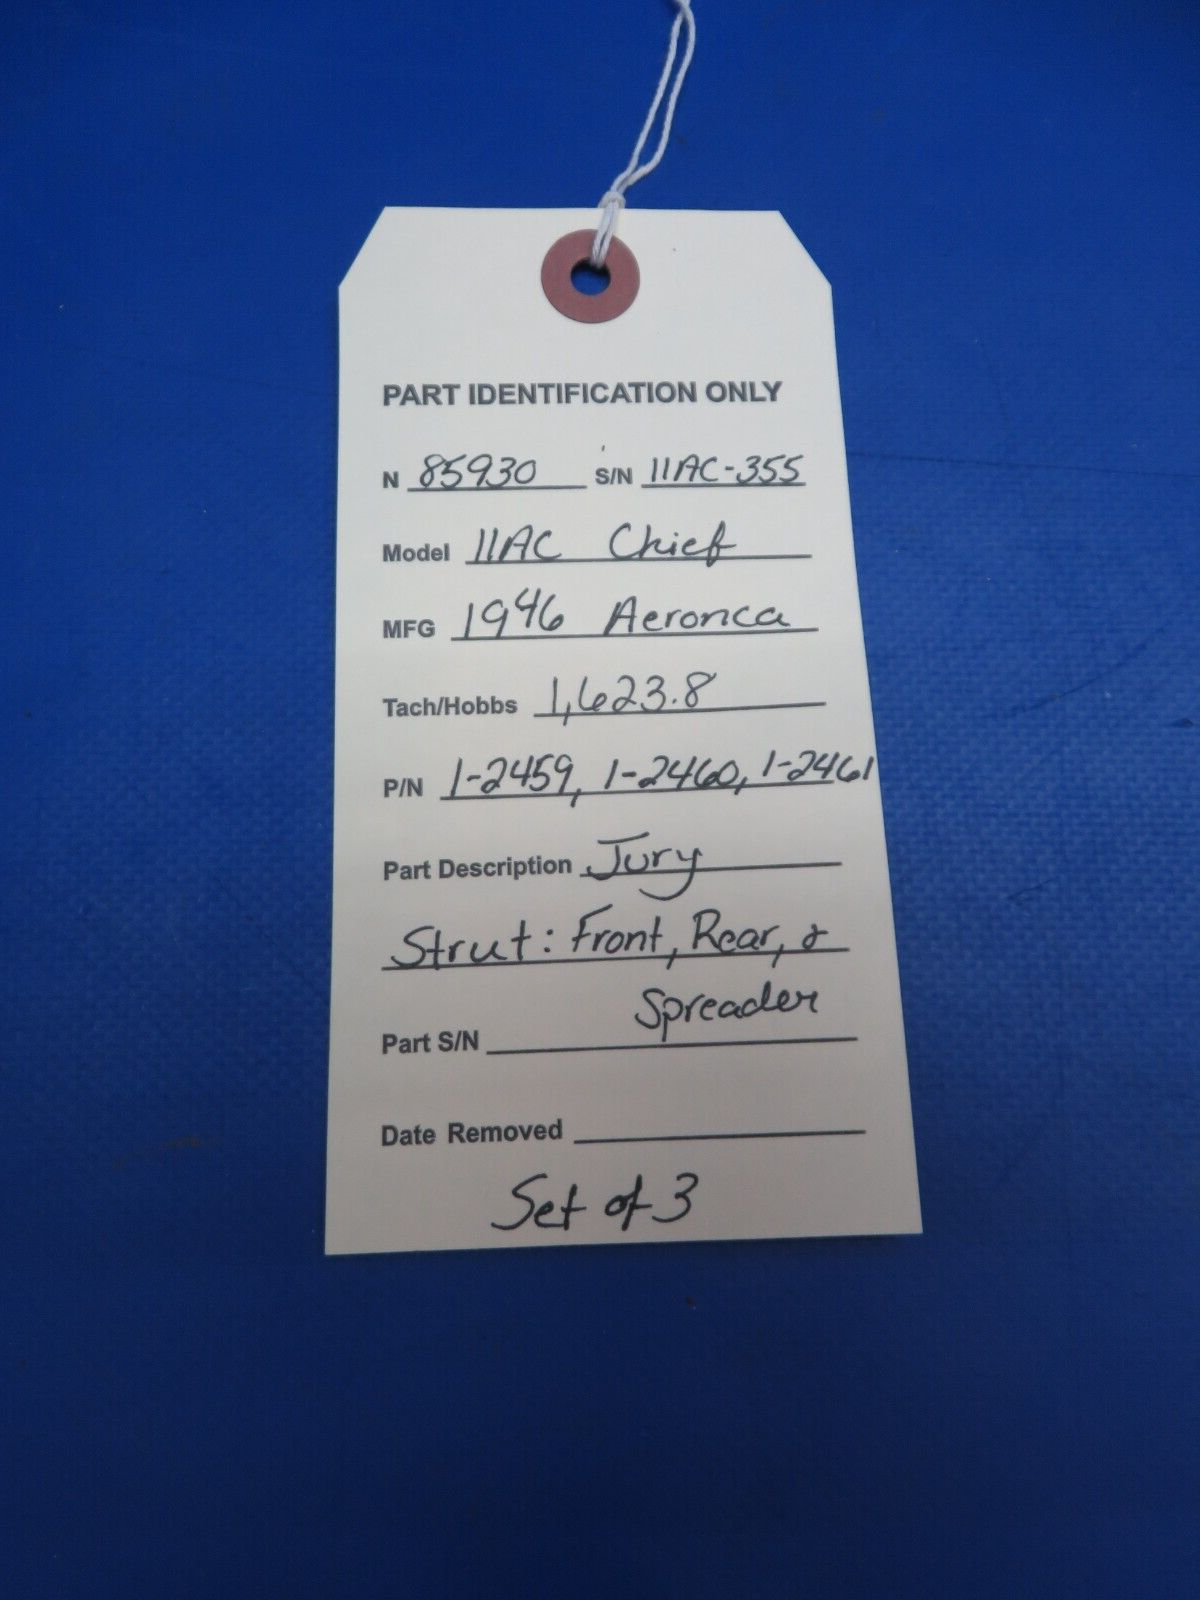 PART IDENTIFICATION ONLY
N 85930 S/N 11AC-355
Model 11AC Chief
MFG 1946 Aeronca
Tach/Hobbs 1,623.8
P/N 1-2459, 1-2460, 1-2461
Part Description Jury
Strut: Front, Rear, &
Spreader
Part S/N
Date Removed
Set of 3